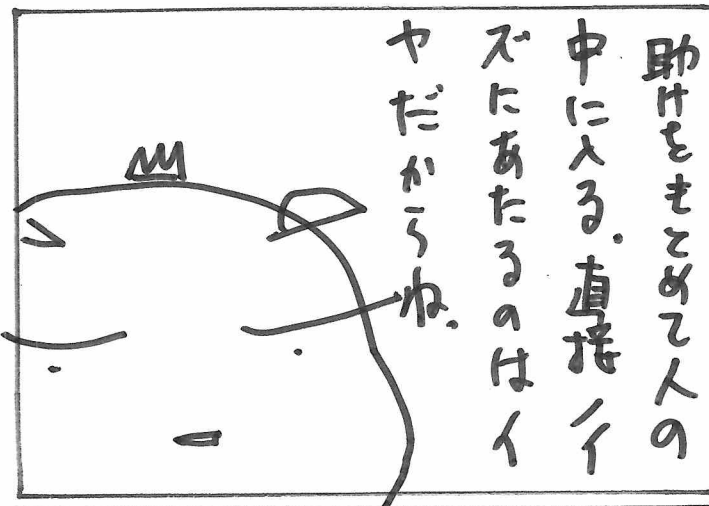 助けをもとめて人の
中に入る。直接ノイ
ズにあたるのはイ
ヤだからね。